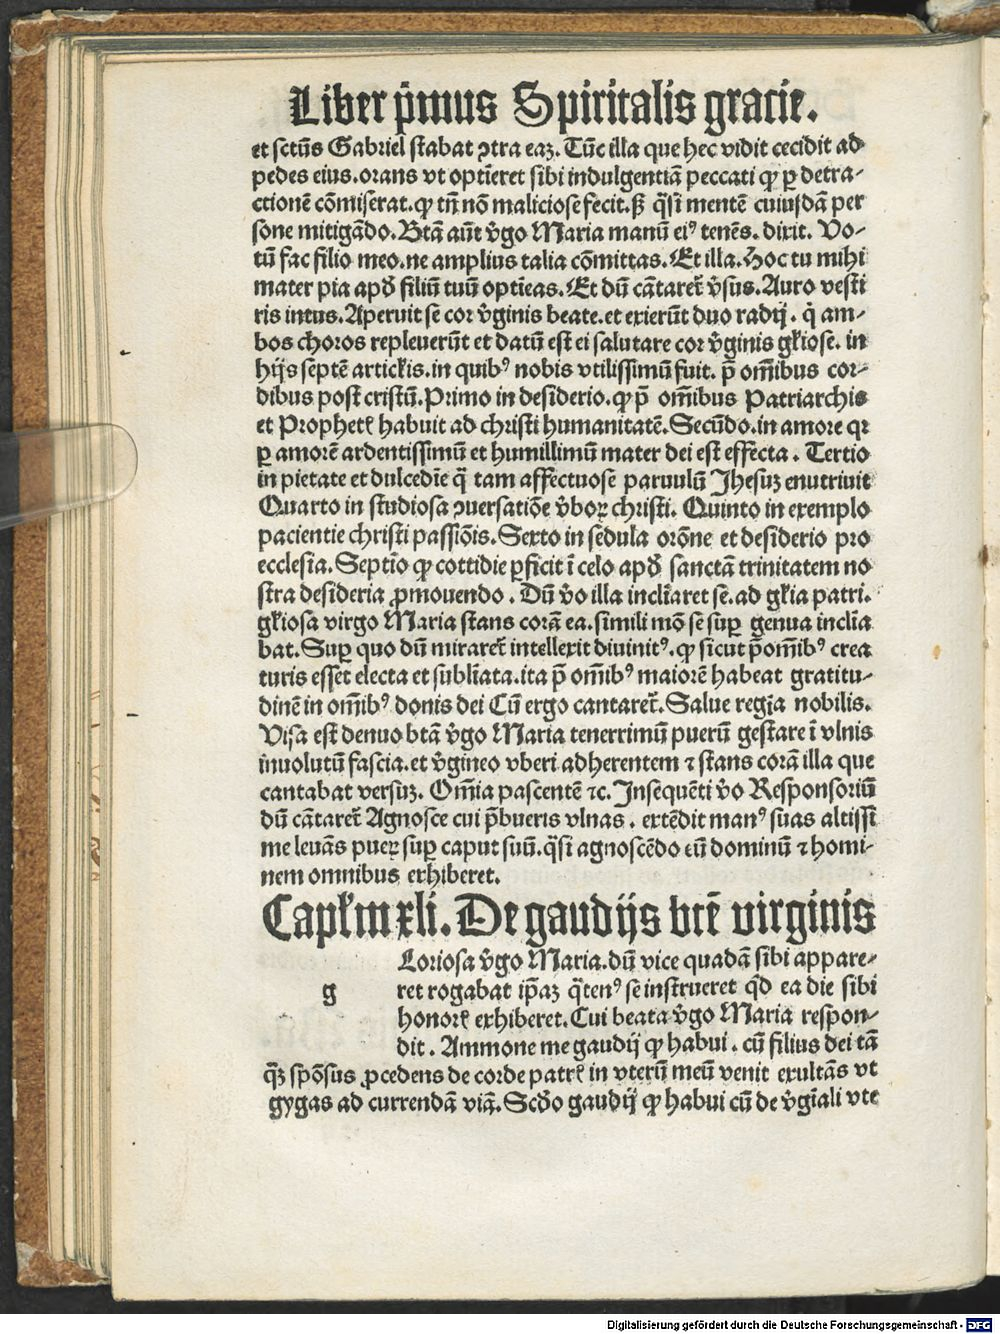 Liber p̄mus Spiritalis gracie.
et sctūs Gabriel stabat ꝯtra eaꝫ. Tūc illa que hec vidit cecidit ad
pedes eius. orans vt optīeret sibi indulgentiā peccati ꝙ ꝑ detra-
ctionē cōmiserat. ꝙ tn̄ nō maliciose fecit. ꝭ q̄si mentē cuiusdā per
sone mitigādo. Btā aūt v̄go Maria manū eiꝰ tenēs. dixit. Vo-
tū fac filio meo. ne amplius talia cōmittas. Et illa. Hoc tu mihi
mater pia apđ filiū tuū optīeas. Et dū cātaret̄ v̄sus. Auro vesti
ris intus. Aperuit se cor v̄ginis beate. et exierūt duo radij. q̇ am-
bos choros repleuerūt et datū est ei salutare cor v̄ginis gl̄iose. in
hijs septē articl̄is. in quibꝰ nobis vtilissimū fuit. p̄ om̄ibus cor-
dibus post cristū. Primo in desiderio. ꝙ p̄ om̄ibus Patriarchis
et Prophetꝭ habuit ad christi humanitatē. Secūdo. in amore qꝛ
ꝑ amorē ardentissimū et humillimū mater dei est effecta. Tertio
in pietate et dulcedīe q̄ tam affectuose paruulū Jhesuꝫ enutriuit
Quarto in studiosa ꝯuersatiōe v̄boꝝ christi. Quinto in exemplo
pacientie christi passiōis. Sexto in sedula orōne et desiderio pro
ecclesia. Septīo ꝙ cottidie ꝑficit ī celo apđ sanctā trinitatem no
stra desideria ꝓmouendo. Dū v̄o illa inclīaret se. ad gl̄ia patri.
gl̄iosa virgo Maria stans corā ea. simili mō se suꝑ genua inclīa
bat. Suꝑ quo dū miraret̄ intellexit diuinitꝰ. ꝙ sicut p̄ om̄ibꝰ crea
turis esset electa et sublīata. ita p̄ om̄ibꝰ maiorē habeat gratitu-
dinē in om̄ibꝰ donis dei Cū ergo cantaret̄. Salue regīa nobilis.
Visa est denuo btā v̄go Maria tenerrimū puerū gestare ī vlnis
inuolutū fascia. et v̄gineo vberi adherentem ⁊ stans corā illa que
cantabat versuꝫ. Om̄ia pascentē ⁊c. Insequēti v̄o Responsoriū
dū cātaret̄ Agnosce cui p̄bueris vlnas. extēdit manꝰ suas altissi
me leuās pueꝝ suꝑ caput suū. q̄si agnoscēdo eū dominū ⁊ homi-
nem omnibus exhiberet.
Capl̄m xli. De gaudijs btē virginis
Loriosa v̄go Maria. dū vice quadā sibi appare-
g ret rogabat ip̄aꝫ q̄tenꝰ se instrueret qđ ea die sibi
honorꝭ exhiberet. Cui beata v̄go Maria respon-
dit. Ammone me gaudij ꝙ habui. cū filius dei tā
q̄ꝫ spōsus ꝓcedens de corde patrꝭ in vterū meū venit exultās vt
gygas ad currendā viā. Scđo gaudij ꝙ habui cū de v̄gīali vte
Digitalisierung gefördert durch die Deutsche Forschungsgemeinschaft - DFG